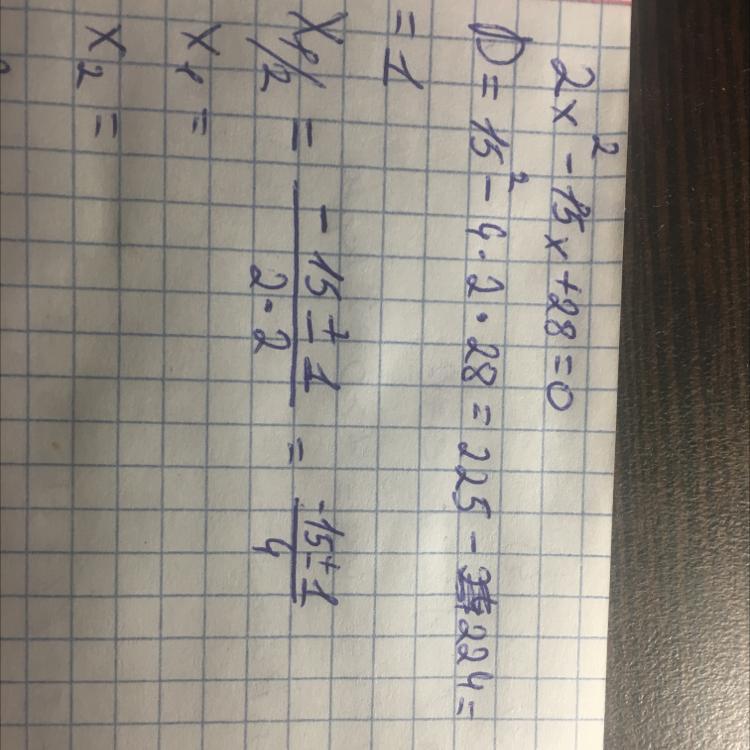 2x² - 15x + 28 = 0
D = 15² - 4 · 2 · 28 = 225 - 224 =
= 1
x₁/₂ = (-15 ± 1)/(2 · 2) = (-15 ± 1)/4
x₁ =
x₂ =